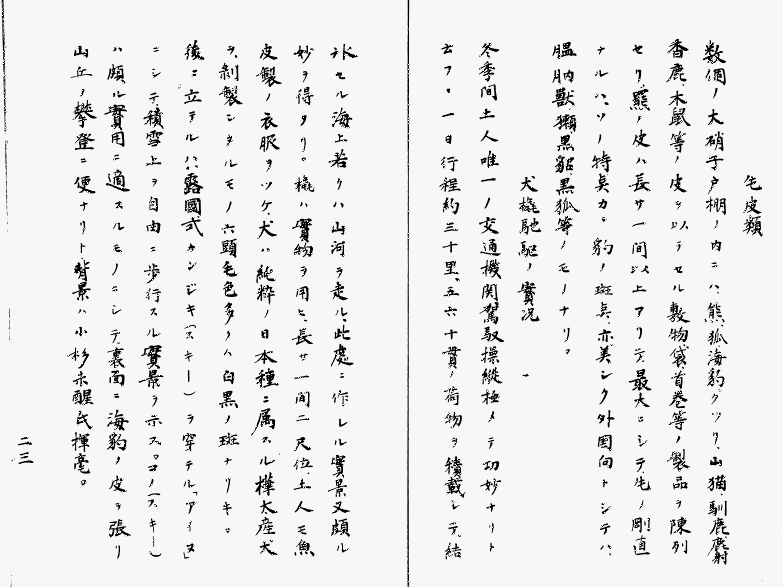 毛皮類
数個ノ大硝子戸棚ノ内ニハ、熊、狐海豹、グツリ、山猫、馴鹿麝
香鹿、木鼠等ノ皮ヲ以テセル敷物袋首巻等ノ製品ヲ陳列
セリ、羆ノ皮ハ長サ一間以上アリテ、最大ニシテ、毛ノ剛直
ナルハ、ソノ特点カ。豹ノ斑点、亦、美シク外国向トシテハ、
膃肭獣、獺、黒貂、黒狐等ノモノナリ。
犬橇馳駆ノ實况
冬季間土人唯一ノ交通機関、駕馭操縦極メテ功妙ナリト
云フ。一日行程約三十里、五六十貫ノ荷物ヲ積載シテ、結
氷セル海上若クハ山河ヲ走ル、此處ニ作レル實景又頗ル
妙ヲ得タリ。橇ハ實物ヲ用ヒ、長サ一間二尺位、土人モ魚
皮製ノ衣服ヲツケ、犬ハ純粋ノ日本種ニ属スル樺太産犬
ヲ、剥製シタルモノ六頭毛色多クハ白黒ノ斑ナリキ。
後ニ立テルハ、露國式カンジキ(スキー)ヲ穿テル「アイヌ」
ニシテ、積雪上ヲ自由ニ歩行スル實景ヲ示ス。コノ(スキー)
ハ頗ル實用ニ適スルモノニシテ、裏面ニ海豹ノ皮ヲ張リ
山丘ノ攀登ニ便ナリト背景ハ小杉未醒氏揮毫。
二三